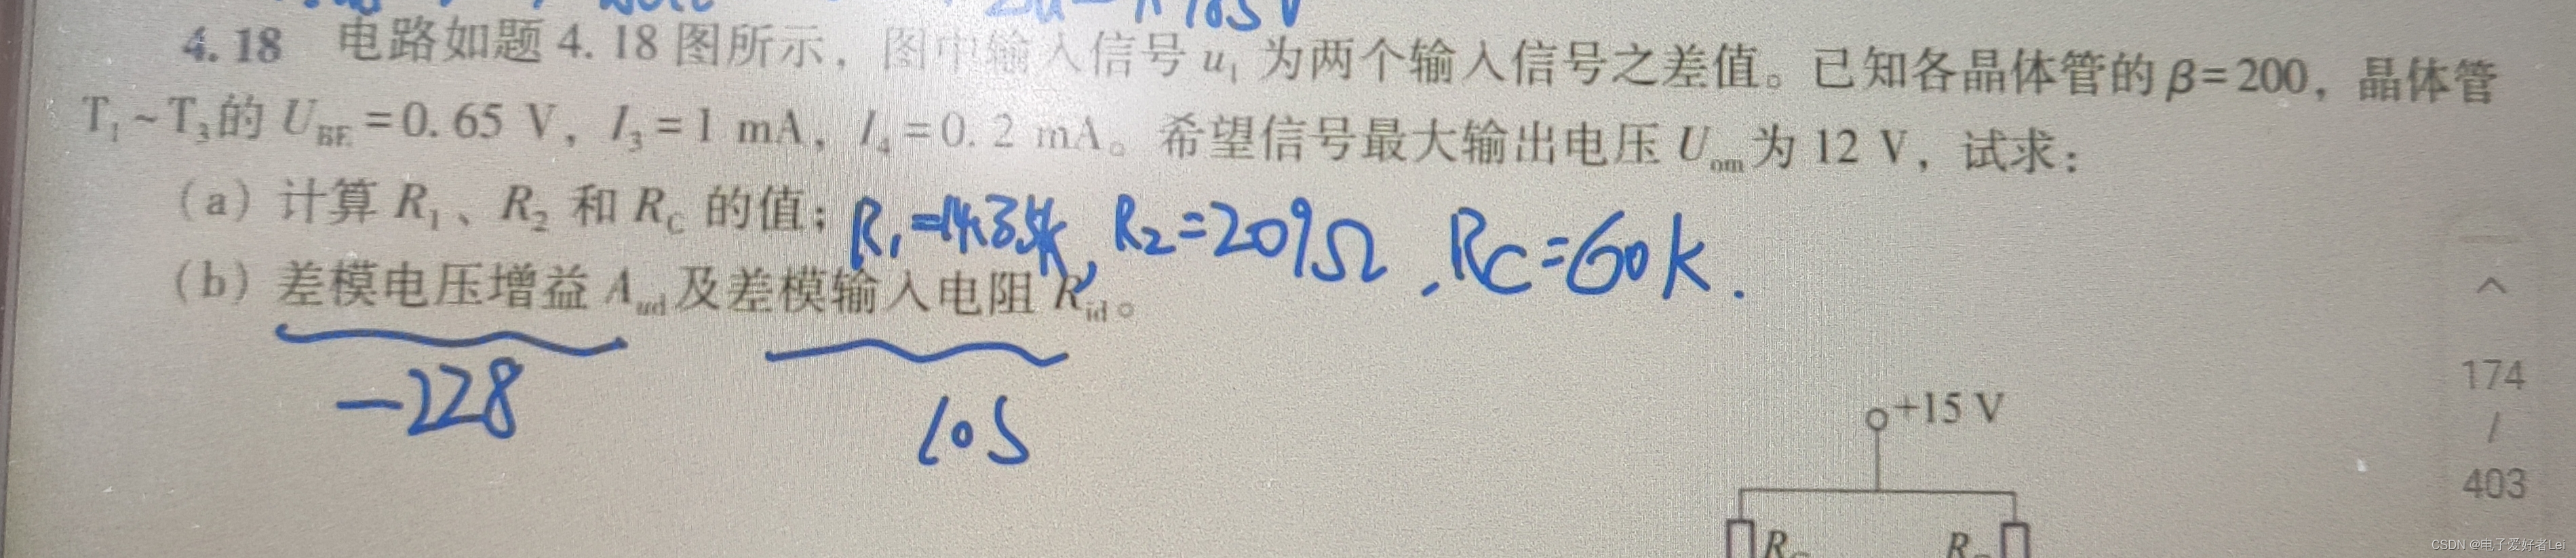 4.18 电路如题 4.18 图所示，图中输入信号 u_I 为两个输入信号之差值。已知各晶体管的 β=200，晶体管
T₁~T₃的 U_BE=0.65 V，I₃=1 mA，I₄=0.2 mA。希望信号最大输出电压 U_om为 12 V，试求：
（a）计算 R₁、R₂ 和 R_C 的值；R₁=14.35k, R₂=209Ω, RC=60k.
（b）差模电压增益 A_ud及差模输入电阻 R_id。
-228
105
174
/
403
+15 V
R_C
CSDN @电子爱好者Lei